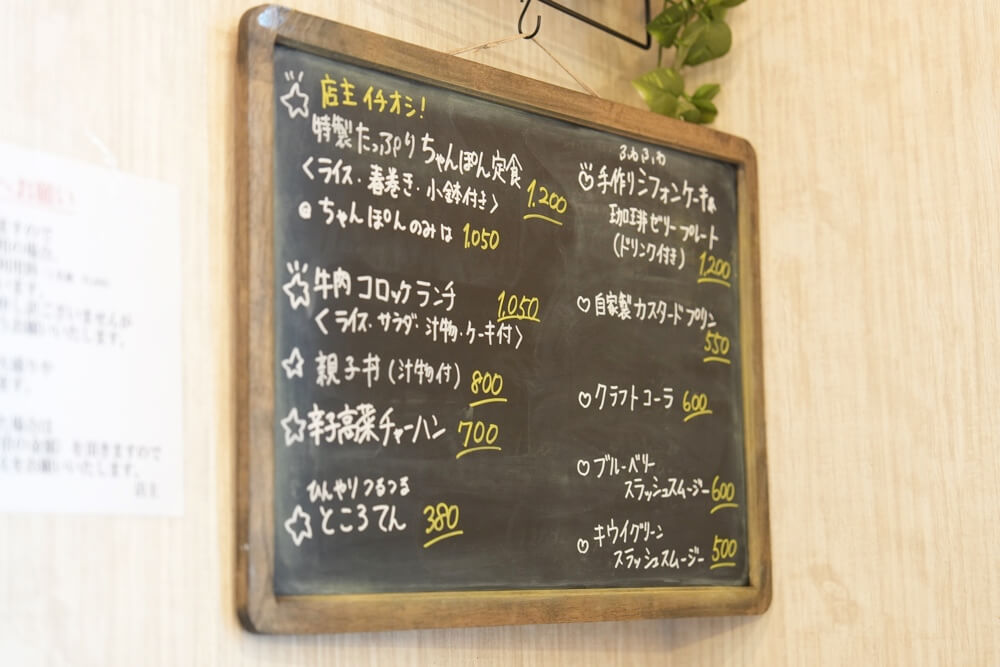 店主イチオシ!
特製たっぷりちゃんぽん定食
<ライス・春巻き・小鉢付き> 1.200
ちゃんぽんのみは 1.050
牛肉コロッケランチ 1.050
<ライス・サラダ・汁物・ケーキ付>
親子丼(汁物付) 800
辛子高菜チャーハン 700
ひんやりつるつる
ところてん 380
ふわふわ
手作りシフォンケーキ&
珈琲ゼリープレート
(ドリンク付き) 1,200
自家製カスタードプリン
550
クラフトコーラ 600
ブルーベリー
スラッシュスムージー 600
キウイグリーン
スラッシュスムージー 500
お願い